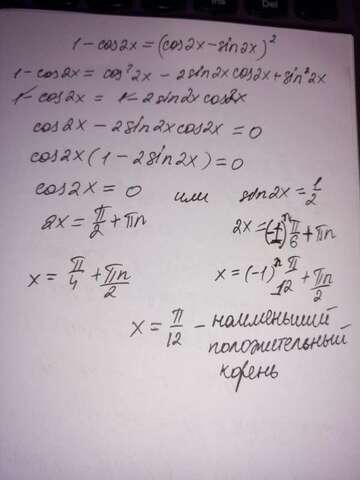 1 - cos2x = (cos2x - sin2x)²
1 - cos2x = cos²2x - 2sin2x cos2x + sin²2x
1 - cos2x = 1 - 2sin2x cos2x
cos2x - 2sin2x cos2x = 0
cos2x (1 - 2sin2x) = 0
cos2x = 0 или sin2x = 1/2
2x = π/2 + πn 2x = (-1)ⁿ π/6 + πn
x = π/4 + πn/2 x = (-1)ⁿ π/12 + πn/2
x = π/12 - наименьший
положительный
корень